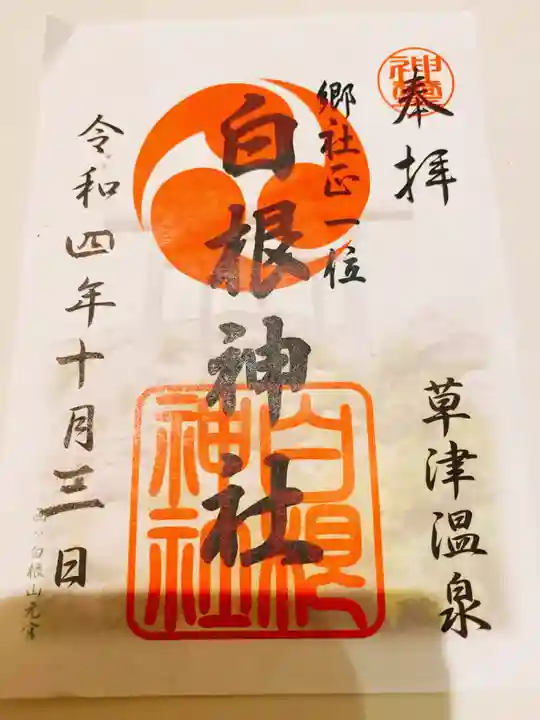 奉拝
草津温泉
郷社正一位
白根神社
白根
神社
令和四年十月三日
白根山元宮